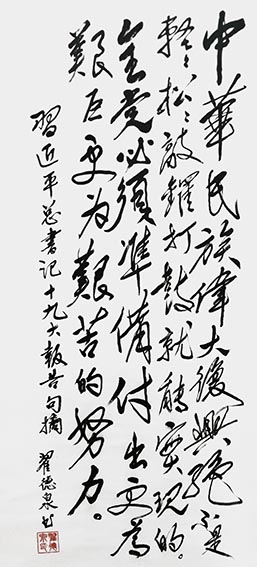 中華民族偉大復興絕不是
輕〻松〻敲鑼打鼓就能實現的。
全党必須準備付出更為
艱巨更为艱苦的努力。
習近平总書记十九大報告句摘 翟德泉书